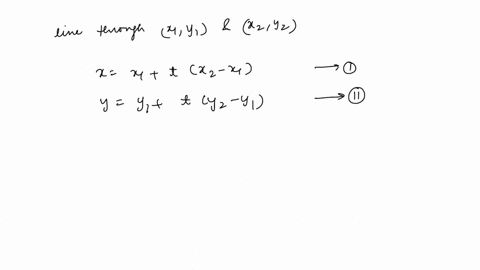 line through (x₁,y₁) & (x₂,y₂)
x = x₁ + t (x₂-x₁) → Ⓘ
y = y₁ + t (y₂-y₁) → Ⓘ︎Ⓘ